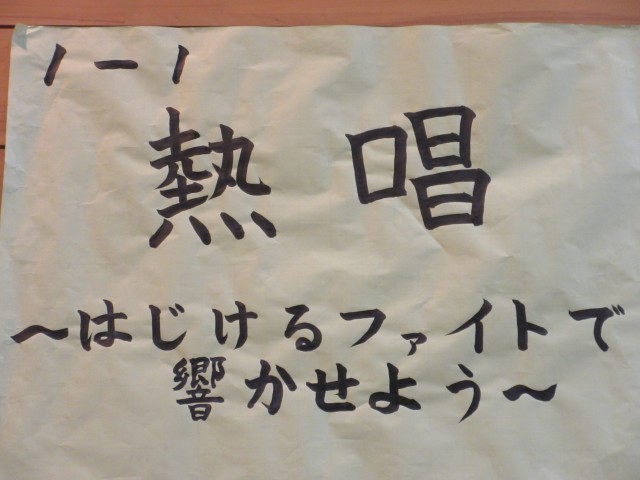 1ー1
熱唱
～はじけるファイトで
響かせよう～